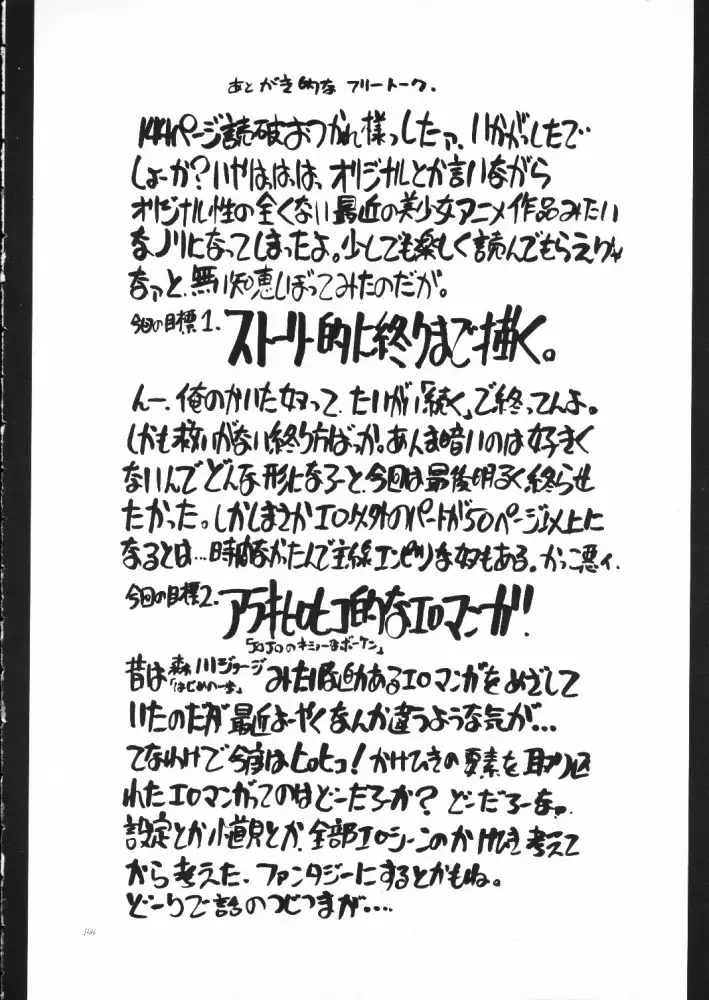 あとがき的な フリートーク.
144ページ読破おつかれ様っしたァ、いかがっしたで
しょーか?いやは、は、は、オリジナルとか言いながら
オリジナル性の全くない最近の美少女アニメ作品みたい
なノリになってしまったよ。少しでも楽しく読んでもらえりゃ
なァと、無い知恵しぼってみたのだが。
今回の目標1. ストーリー的に終りまで描く。
んー、俺のかいた奴って、たいがい「続く」で終ってんよ。
しかも救いがない終り方ばっか。あんま暗いのは好きく
ないんでどんな形になろーと、今回は最後明るく終らせ
たかった。しかしまさかエロ以外のパートが50ページ以上に
なるとは…時間なかたんで主線エンピツな奴もある。かっこ悪ィ.
今回の目標2. アラキヒロヒコ的なエロマンガ!
「JOJOのキミョーなボーケン」
昔は 森川ジョージ みたい躍動あるエロマンガをめざして
「はじめの一歩」
いたのだが最近よーやくなんか違うような気が…
てなわけで今度はヒロヒコ!かけひきの要素を取り込
れたエロマンガってのはどーだろーか?どーだろーなァ.
設定とか小道具とか、全部エロシーンのかけひき考えて
から考えた、ファンタジーにするとかもね。
どーりで話のつじつまが….
144